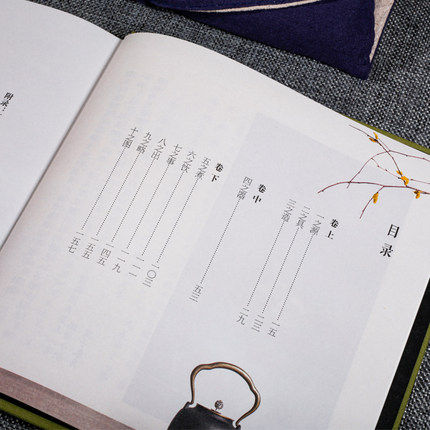 目录
卷上
一之源……一五
二之具……二三
三之造……二九
卷中
四之器……五三
卷下
五之煮……一〇三
六之饮……一一一
七之事……一一九
八之出……一四五
九之略……一五五
十之图……一五七
附录